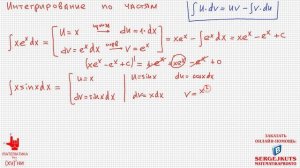 Интегрирование по частям
∫u.dv = uv - ∫v.du
∫xeˣdx = [ u = x → du = 1·dx
dv = eˣdx → v = eˣ ] = xeˣ - ∫eˣdx = xeˣ - eˣ + C
(xeˣ - eˣ + C)' = 1·eˣ + xeˣ - eˣ + 0
∫x sinx dx = [ u = x | u = sinx du = cosx dx
dv = sinx dx | dv = x dx v = x²
МАТЕМАТИКА
ЗАКАЗАТЬ
ОНЛАЙН-ПОМОЩЬ:
SERGEJKUTS
МАТЕМАТИКАПРОСТО